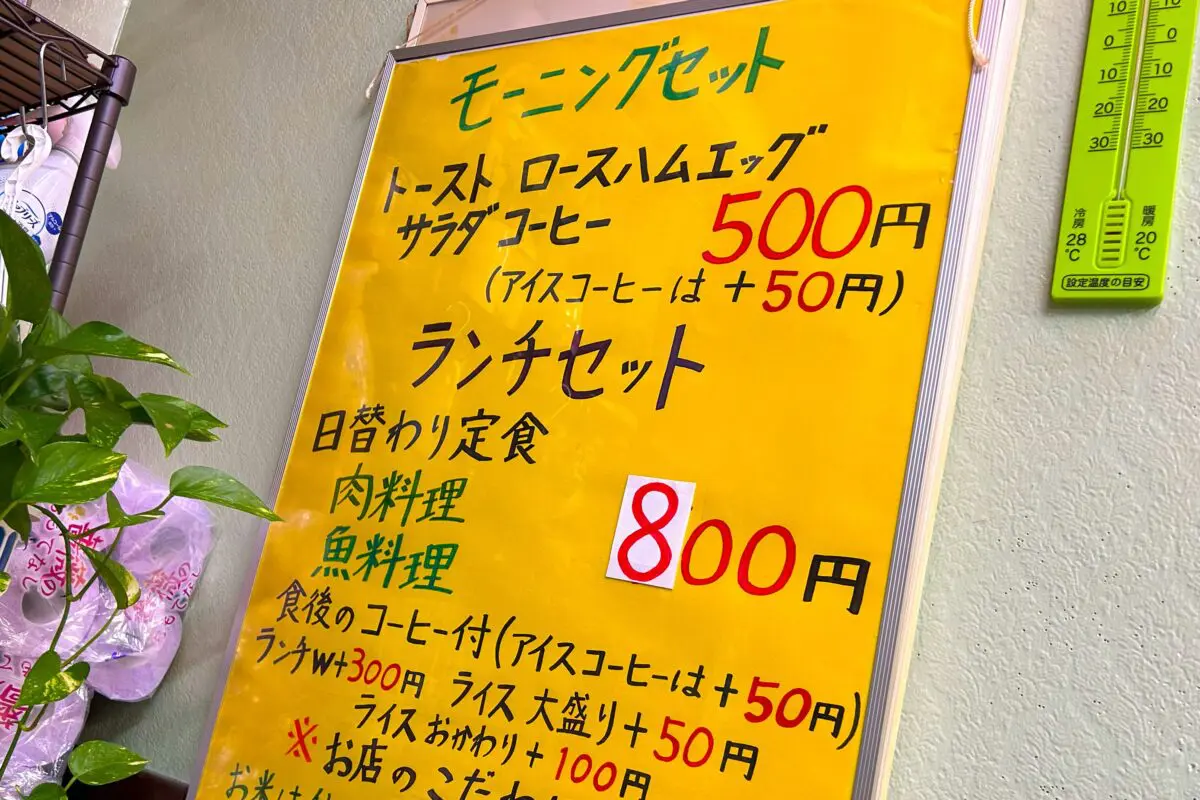 モーニングセット
トースト ロースハムエッグ
サラダ コーヒー 500円
(アイスコーヒーは +50円)
ランチセット
日替わり定食
肉料理
魚料理 800円
食後のコーヒー付(アイスコーヒーは+50円)
ランチW+300円 ライス大盛り+50円
ライスおかわり+100円
※お店のこだわ
お米は
10 10
0 0
10 10
20 20
30 30
冷房 暖房
28 20
℃ ℃
設定温度の目安